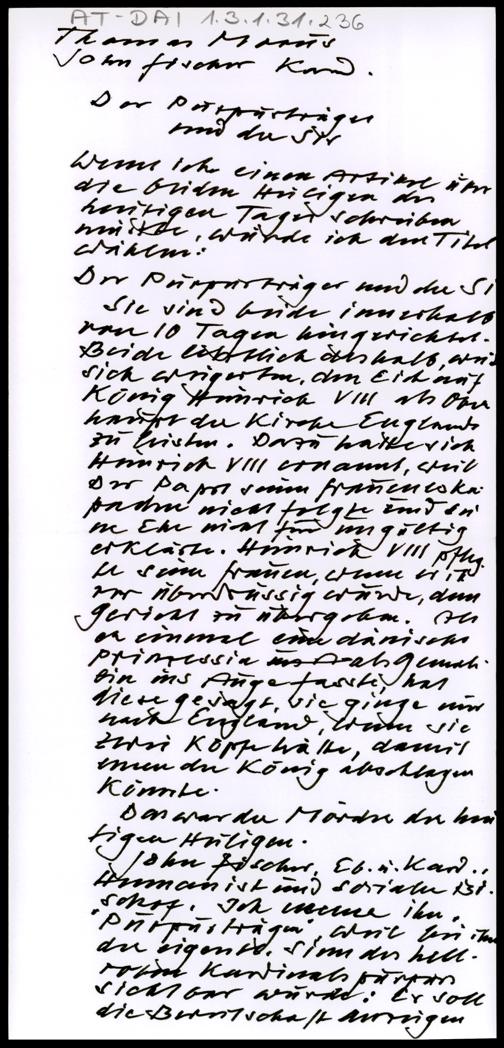 AT-DAI 1.3.1.31.236
Thomas Morus
John Fischer Kard.
Der Purpurträger
und der Sir
Wenn ich einen Artikel über
die beiden Heiligen des
heutigen Tages schreiben
müsste, würde ich den Titel
wählen:
Der Purpurträger und der Si
Sie sind beide innerhalb
von 10 Tagen hingerichtet.
Beide letztlich deshalb, weil
sich weigerten, den Eid auf
König Heinrich VIII als Ober
haupt der Kirche Englands
zu leisten. Dazu hatte sich
Heinrich VIII ernannt, weil
Der Papst seinen Fraueneska
paden nicht folgte und sei
ne Ehe nicht für ungültig
erklärte. Heinrich VIII pfleg
te seine Frauen, wenn er ih
rer überdrüssig wurde, dem
Gericht zu übergeben. Als
er einmal eine dänische
Prinzessin als Gemah-
lin ins Auge fasste, hat
diese gesagt, sie ginge nur
nach England, wenn sie
zwei Köpfe hätte, damit
einen der König abschlagen
könnte.
Das war der Mörder der heu
tigen Heiligen.
John Fischer, Eb. u. Kard.,
Humanist und sozialer Bi-
schof. Ich nenne ihn
"Purpurträger", weil bei ihm
der eigentl. Sinn des hell-
roten Kardinalspurpurs
sichtbar wurde: Er soll
die Bereitschaft anzeigen